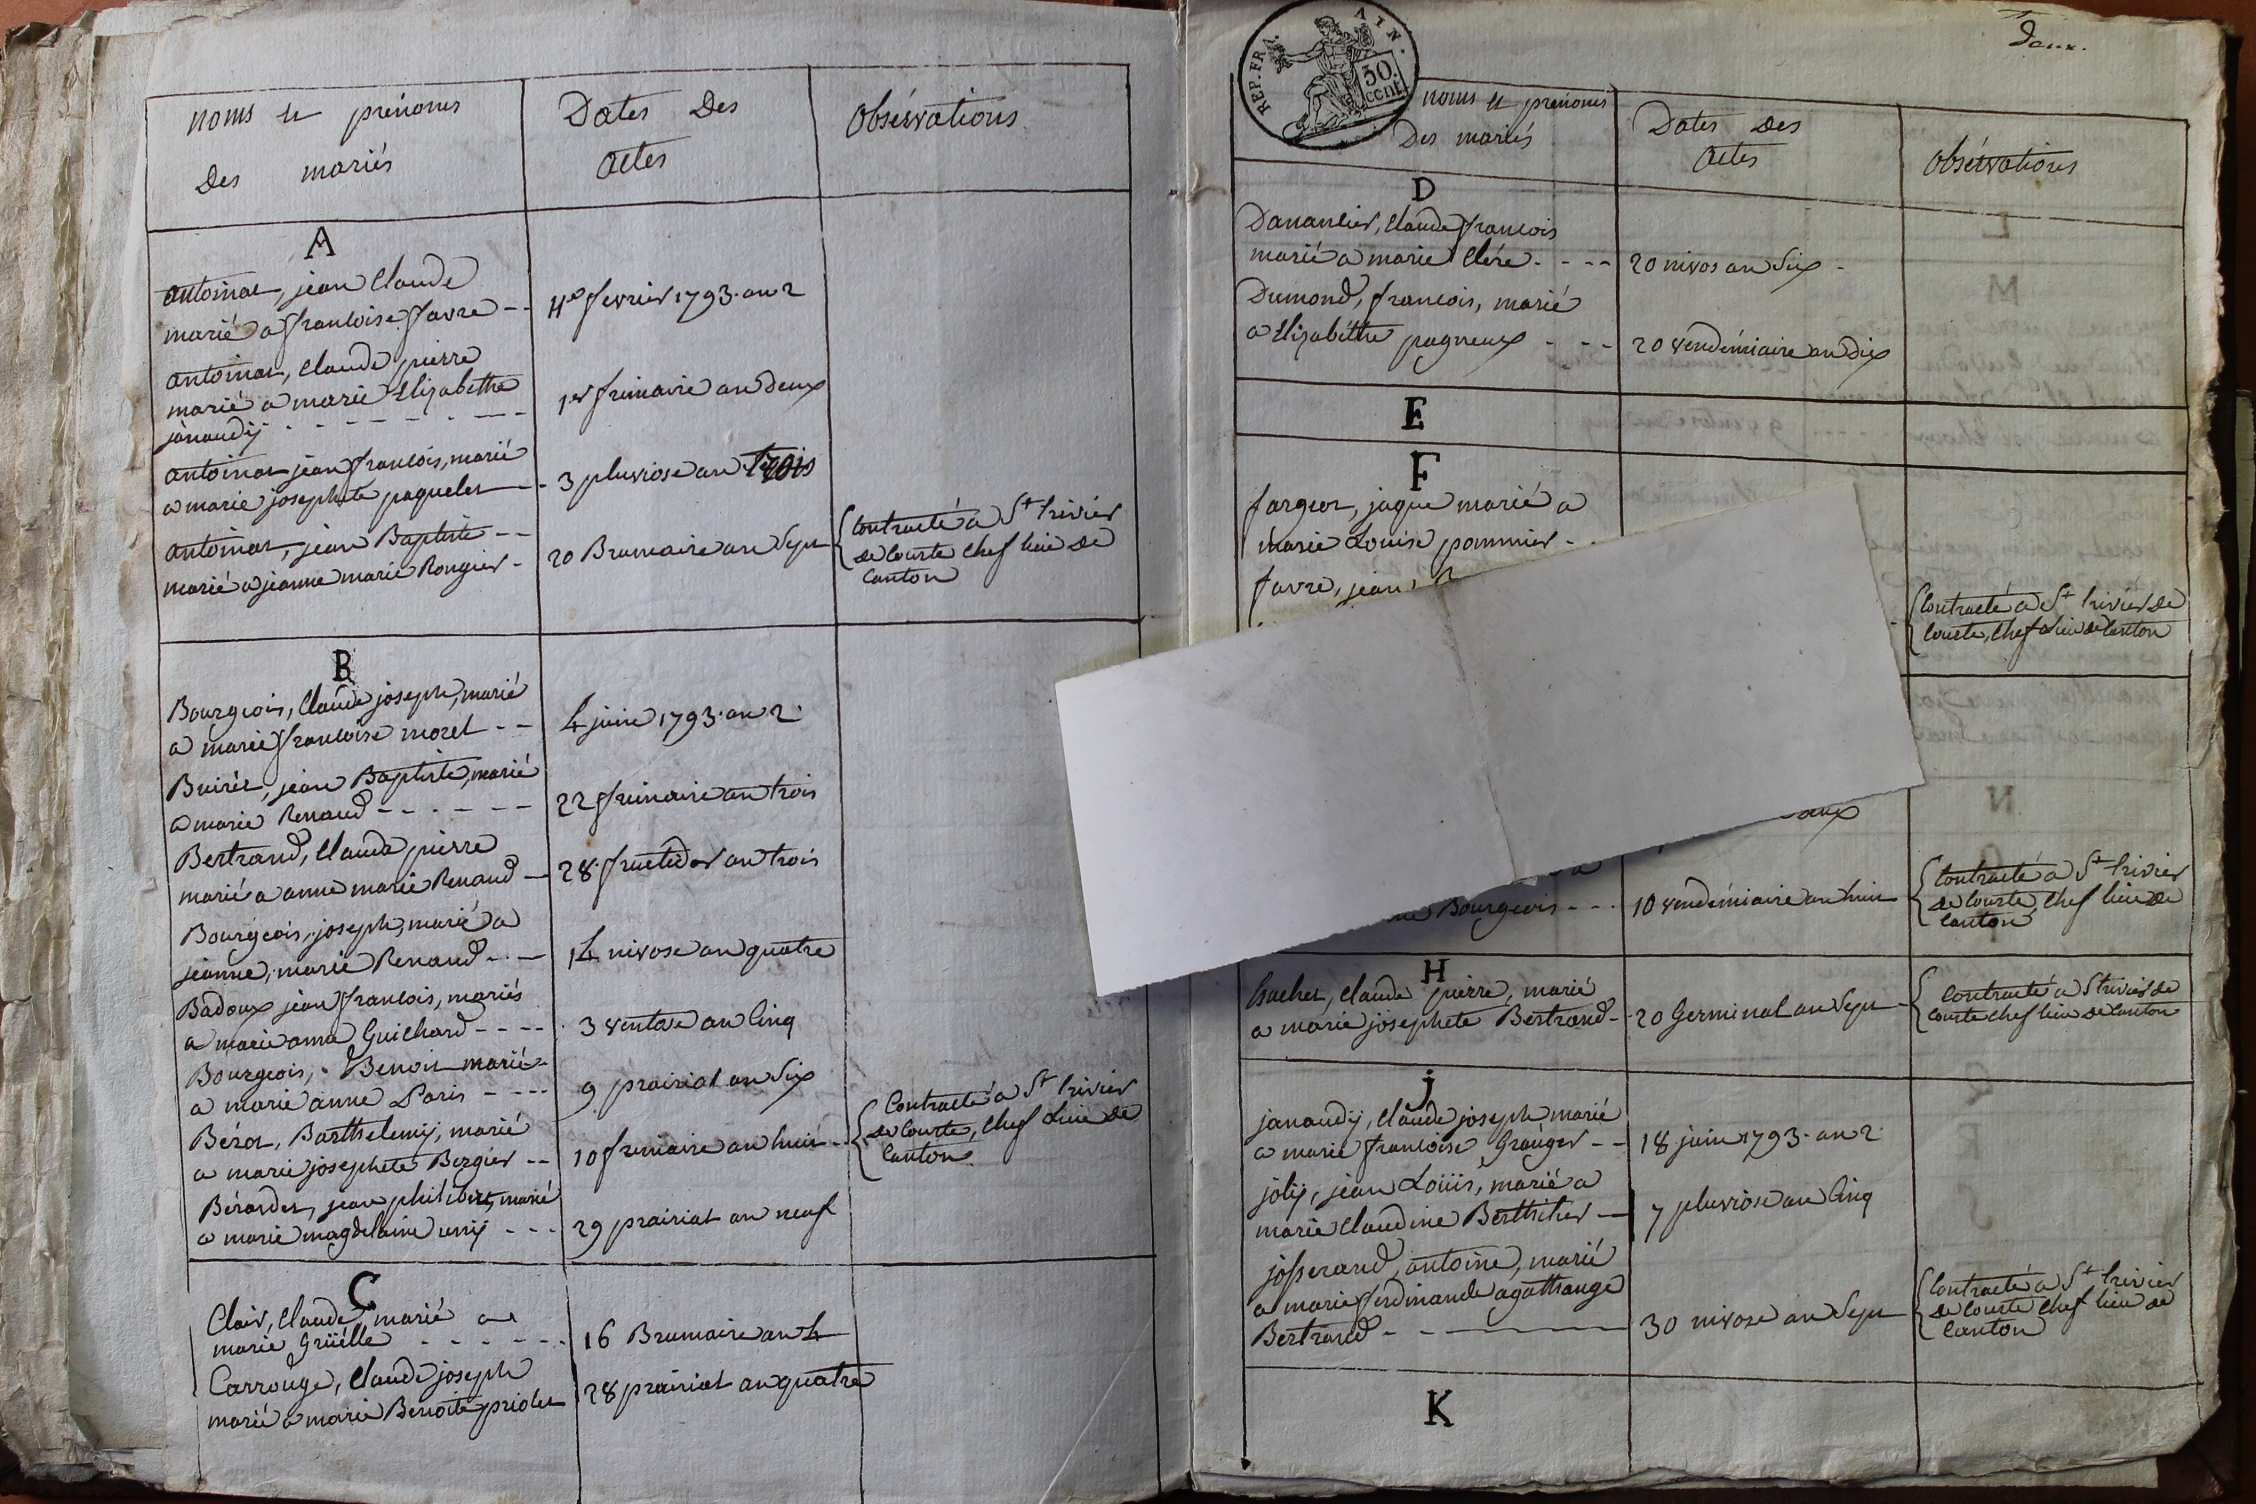 noms et prénoms
Des mariés
Dates Des
Actes
Obsérvations
A
antoinat, jean Claude
marié a francoise favre --
4e fevrier 1793. an 2
antoinat, Claude pierre
marié a marie Elizabethe
janaudÿ - - - - - - -
1er frimaire an deux
antoinat jean francois, marié
a marie josephete paquelet -
3 pluviose an trois
antoinat, jean Baptiste --
marié a jeanne marie Rongier -
20 Brumaire an Sept
Contracté a St trivier
de Courte Chef lieu de
Canton
B
Bourgeois, Claude joseph, marié
a marie francoise morel --
4 juin 1793. an 2.
Buirét, jean Baptiste, marié
a marie Renaud - - - - - -
22 frimaire an trois
Bertrand, Claude pierre
marié a anne marie Renaud -
28. fructidor an trois
Bourgeois, joseph, marié a
jeanne, marie Renaud - . -
14 nivose an quatre
Badoux jean francois, mariés
a marie anna Guichard - - - -
3 ventose an Cinq
Bourgeois, Benoit marié -
a marie anne Paris - - - -
9 prairial an Six
Bérot, Barthelemÿ, marié
a marie josephete Bergier --
10 frimaire an huit
Contracté a St trivier
de Courte, Chef Lieu de
Canton
Bérardet, jean philibert, marié
a marie magdelaine - - -
29 prairial an neuf
C
Clair, Claude, marié a
marie Grüelle - - - - - -
16 Brumaire an 4
Carrouge, Claude joseph
marié a marie Benoite priolet
28 prairial an quatre
deux.
REP. FRA. AIN.
50.
cent.
noms et prénoms
Des mariés
Dates Des
Actes
Obsérvations
D
Dananlier, Claude francois
marié a marie Clére - - - -
20 nivos an Six -
Dumond, francois, marié
a Elizabéthe pagneux - - -
20 vendémiaire an dix
E
F
fargeot, jaque marié a
marie Louise pommier -
favre, jean,
Contracté a St trivier de
Courte, Chef Lieu de Canton
Bourgeois - - -
10 vendémiaire an huit
Contracté a St trivier
de Courte, Chef lieu de
Canton
H
hachet, claude pierre, marié
a marie josephete Bertrand -
20 Germinal an Sept
Contracté a St trivier de
Courte chef lieu de Canton
j
janaudÿ, Claude joseph marié
a marie francoise Granger --
18 juin 1793. an 2.
jolÿ, jean Loüis, marié a
marie Claudine Berthilier -
7 pluviose an Cinq
josserand, antoine, marié
a marie ferdinande agathange
Bertrand - - -
30 nivose an Sept
Contracté a St trivier
de Courte Chef lieu de
Canton
K